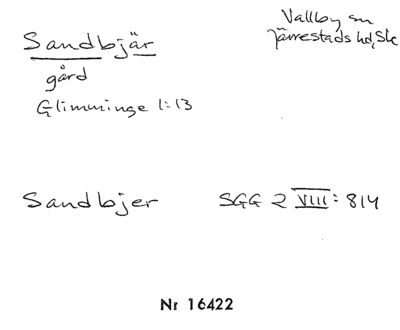 Sandbjär
gård
Glimminge 1:13
Vallby sn
Järrestads hd, Sk
Sandbjer
SGG 2 VIII: 814
Nr 16422